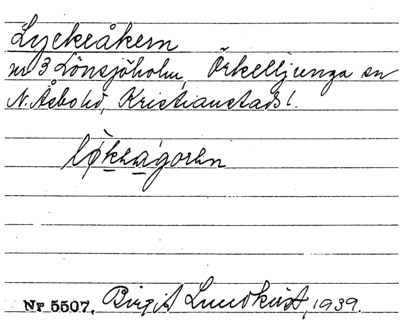 Lyckeåkern
nr 3 Lönsjöholm, Örkelljunga sn
N. Åsbo hd, Kristianstads l.
Nr 5507. Birgit Lundkvist, 1939.